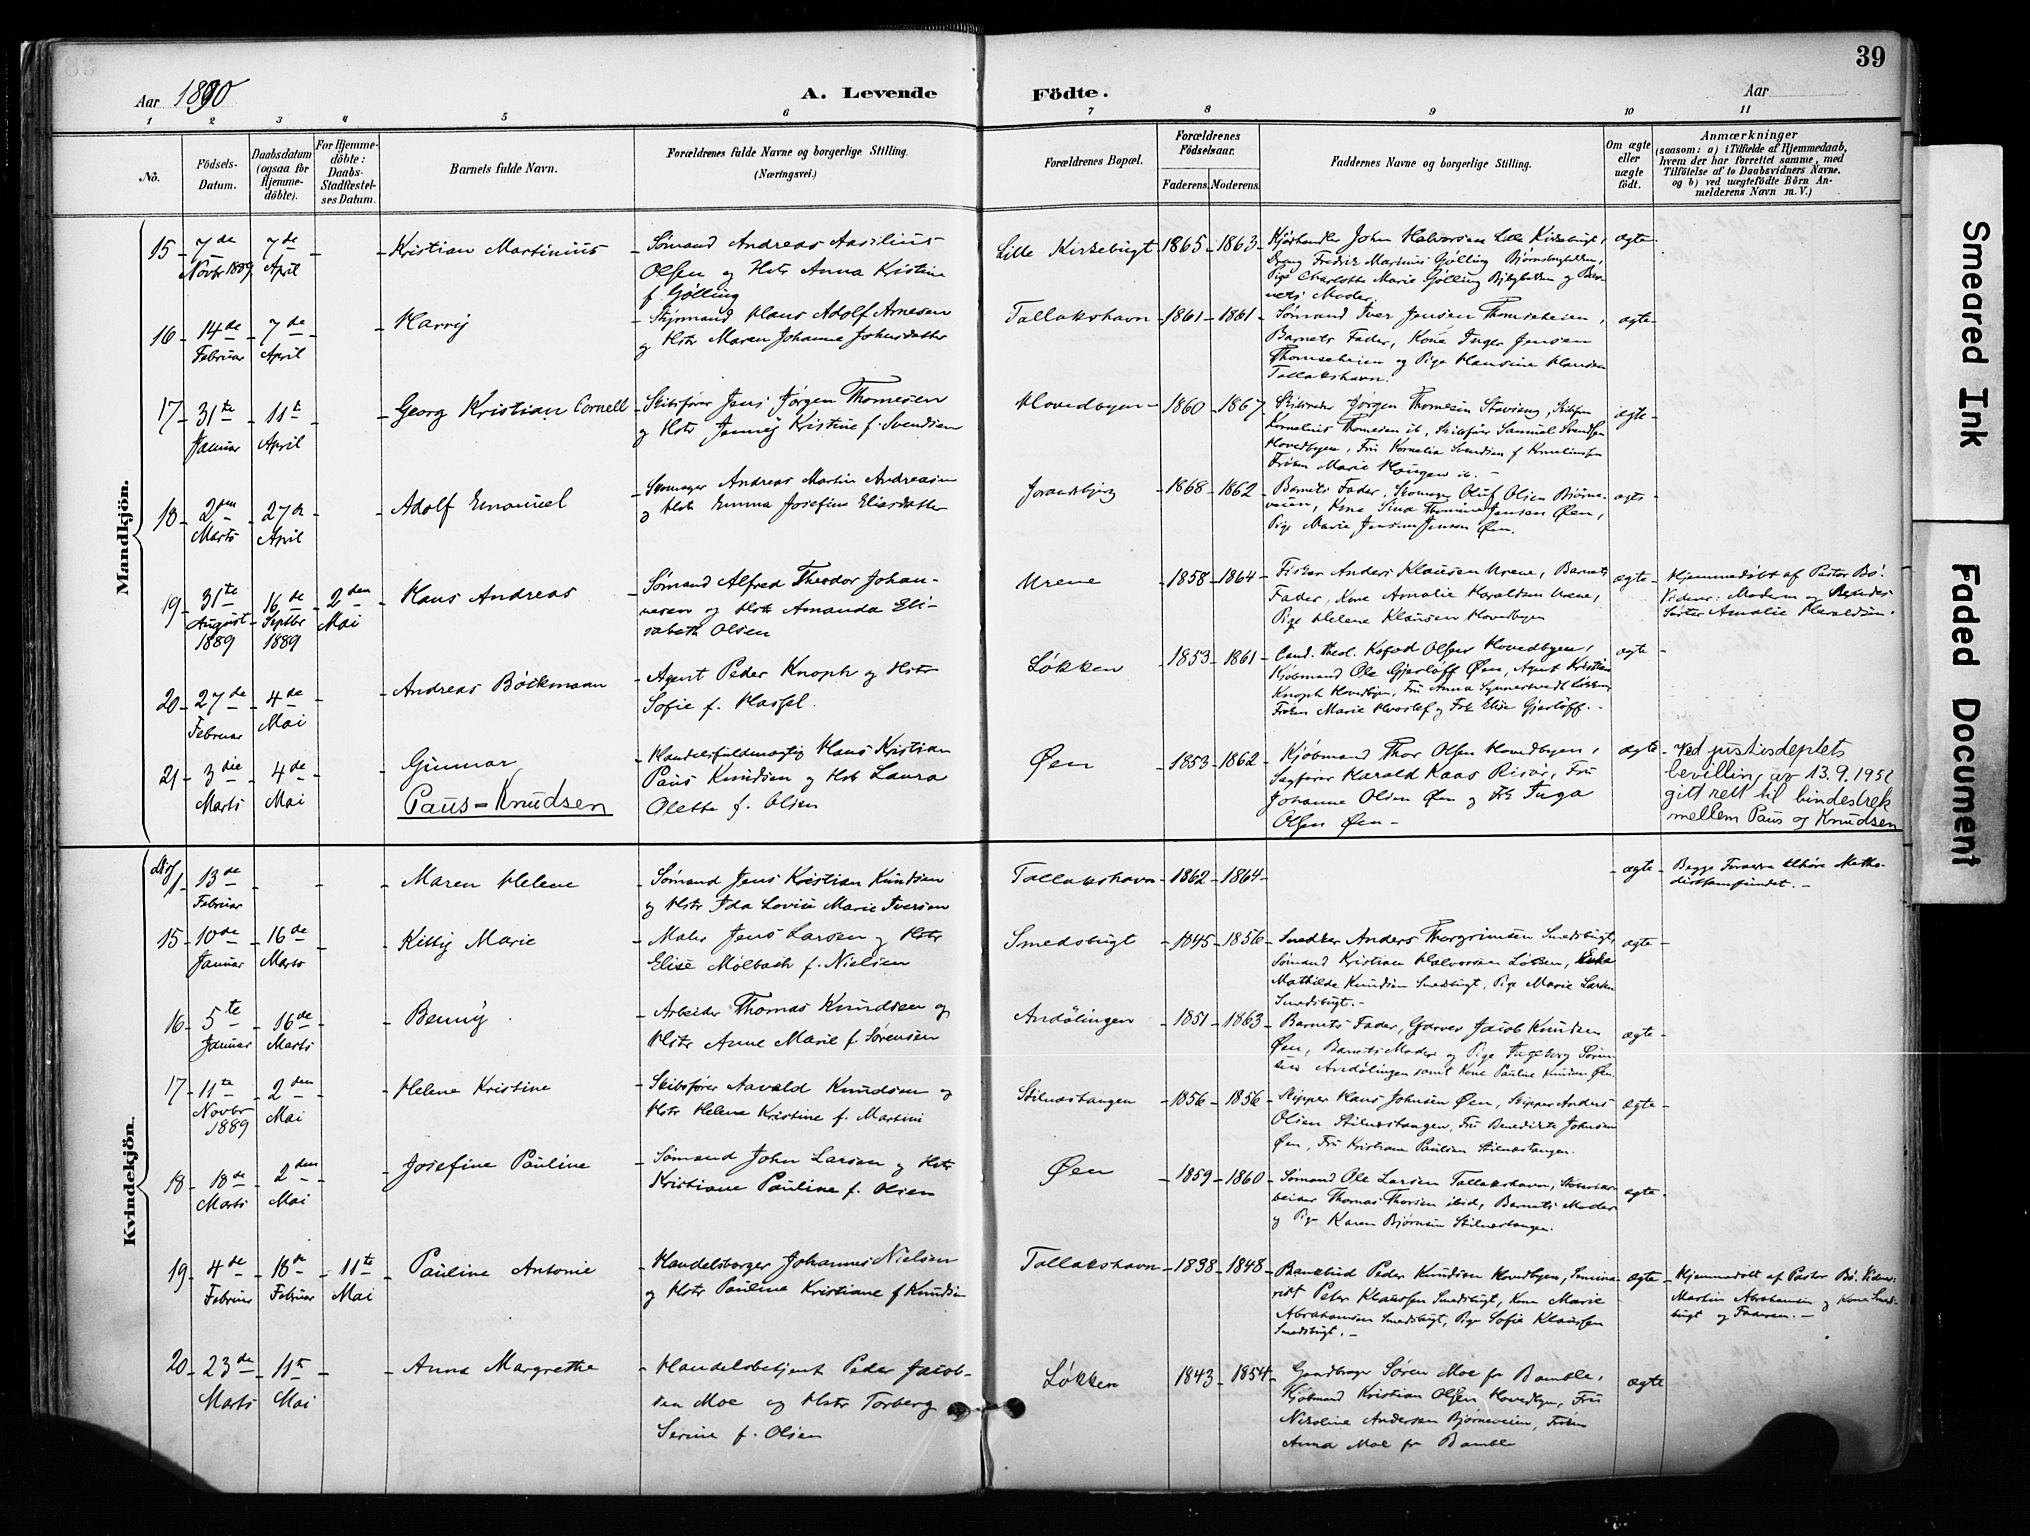 39
Aar 1890
A. Levende Födte.
Aar
1 2 3 4 5 6 7 8 9 10 11
No.
Födsels-Datum.
Daabsdatum (ogsaa för Hjemme-döbte).
For Hjemme-döbte: Daabs-Stadfæstel-ses Datum.
Barnets fulde Navn.
Forældrenes fulde Navne og borgerlige Stilling.
(Næringsvei.)
Forældrenes Bopæl.
Forældrenes Födselsaar.
Faderens. Moderens.
Faddernes Navne og borgerlige Stilling.
Om ægte eller uægte födt.
Anmærkninger
(saasom: a) i Tilfælde af Hjemmedaab, hvem der har forrettet samme, med Tilföielse af to Daabsvidners Navne. og b) ved uægtefödte Börn An-melderens Navn m. V.)
Mandkjön.
15 7de Novbr 1889 7de April
Kristian Martinius
Sømand Andreas Aasilius
Olsen og Hstr Anna Kristine
f. Gølling
Lille Kirkebugt 1865 1863
John Halvorsen Lille Kirkebugt,
Dreng Fredrik Martinius Gølling
Pige Charlotte Marie Gølling og Bar-
nets Moder.
ægte
16 14de Februar 7de April
Harry
Styrmand Hans Adolf Arnesen
og Hstr Maren Johanne Johnsdatter
Tallakshavn 1861 1861
Sømand Iver Jensen Thomseheien,
Barnets Fader, Kone Inger Jensen
Thomseheien og Pige Hansine Hansen
Tallakshavn.
ægte
17 31te Januar 11te April
Georg Kristian Cornell
Skibsfører Jens Jørgen Thomesen
og Hstr Jenny Kristine f. Svendsen
Hovedbyen 1860 1867
Skibsreder Jørgen Thomesen
Kornelius Thomesen ib, Skibsfører Samuel Svendsen
Hovedbyen, Fru Kornelia Svendsen f. Korneliussen
Frøken Marie Haugen ib.
ægte
18 2den Marts 27de April
Adolf Emanuel
Skomager Andreas Martin Andreasen
og Hstr Emma Josefine Eliasdatter
1868 1862
Barnets Fader, Skomager Oluf Olsen Bjørne-
veien, Kone Sina Thomine Jensen Øen,
Pige Marie Jensen Øen.
ægte
19 31te August 1889 16de Septbr 1889 2den Mai
Hans Andreas
Sømand Alfred Theodor Johan-
nesen og Hstr Amanda Eli-
sabeth Olsen
Urene 1858 1864
Fisker Anders Klausen Urene, Barnets
Fader, Kone Amalie Haraldsen Urene,
Pige Helene Klausen Hovedbyen
ægte
Hjemmedöbt af Pastor Bö.
Vidner: Moderen og
Søster Amalie Haraldsen.
20 27de Februar 4de Mai
Andreas Böckmann
Agent Peder Knoph og Hstr
Sofie f. Hassel.
Løkken 1853 1861
Cand. theol. Kofod Olsen Hovedbyen,
Kjøbmand Ole Gjerløff Øen, Agent Kristian
Knoph Hovedbyen, Fru Anna Synnestvedt Løkken
Frøken Marie og Frk Elise Gjerløff.
ægte
21 3die Marts 4de Mai
Gunnar
Paus-Knudsen
Handelsfuldmægtig Hans Kristian
Paus Knudsen og Hstr Laura
Olette f. Olsen
Øen 1853 1862
Kjøbmand Thor Olsen Hovedbyen,
Sagfører Harald Kaas Risør, Fru
Johanne Olsen Øen og Frk Inga
Olsen Øen
ægte
Ved justisdeptets
bevilling av 13.9.1951
gitt rett til bindestrek
mellem Paus og Knudsen
Kvindekjön.
Diss 1 13de Februar
Maren Helene
Sømand Jens Kristian Knudsen
og Hstr Ida Lovise Marie Iversen
Tallakshavn 1862 1864
ægte
Begge Forældre tilhøre Metho-
distsamfundet.
15 10de Januar 16de Marts
Kitty Marie
Maler Jens Larsen og Hstr
Elise Mølbach f. Nielsen
Smedsbugt 1845 1856
Snedker Anders Thorgrimsen Smedsbugt,
Sømand Kristian Halvorsen Løkken,
Mathilde Knudsen Smedsbugt, Pige Marie Larsen
Smedsbugt.
ægte
16 5te Januar 16de Marts
Benny
Arbeider Thomas Knudsen og
Hstr Anne Marie f. Sørensen
Andölingen 1851 1863
Barnets Fader, Garver Jacob Knudsen
Øen, Barnets Moder og Pige Ingeborg Søren-
sen Andölingen samt Kone Pauline Knudsen Øen.
ægte
17 11te Novbr 1889 2den Mai
Helene Kristine
Skibsfører Aavald Knudsen og
Hstr Helene Kristine f. Martini
Stilnæstangen 1856 1856
Skipper Hans Johnsen Øen, Skipper Anders
Olsen Stilnæstangen, Fru Benedikte Johnsen
Øen, Fru Kristiane Paulsen Stilnæstangen.
ægte
18 18de Marts 2den Mai
Josefine Pauline
Sømand John Larsen og Hstr
Kristiane Pauline f. Olsen
Øen 1859 1860
Sømand Ole Larsen Tallakshavn,
beider Thomas Thorsen ibid, Barnets Moder
og Pige Karen Bjørnsen Stilnæstangen.
ægte
19 4de Februar 18de Februar 11te Mai
Pauline Antonie
Handelsborger Johannes Nielsen
og Hstr Pauline Kristiane f. Knudsen
Tallakshavn 1838 1848
Bankbud Peder Knudsen Hovedbyen, Semina-
rist Peter Klaussen Smedsbugt, Kone Marie
Abrahamsen Smedsbugt, Pige Sofie Klaussen
Smedsbugt.
ægte
Hjemmedöbt af Pastor Bö. Vidner:
Martin Abrahamsen og Kone Smeds-
bugt og Faderen.
20 23de Marts 11te Mai
Anna Margrethe
Handelsbetjent Peder Jacob-
sen Moe og Hstr Torberg
Serine f. Olsen
Løkken 1843 1854
Gaardbruger Søren Moe fr Bamble,
Kjøbmand Kristian Olsen Hovedbyen, Fru
Nikoline Andersen Bjørneveien, Frøken
Anna Moe fr Bamble
ægte
Smeared Ink
Faded Document